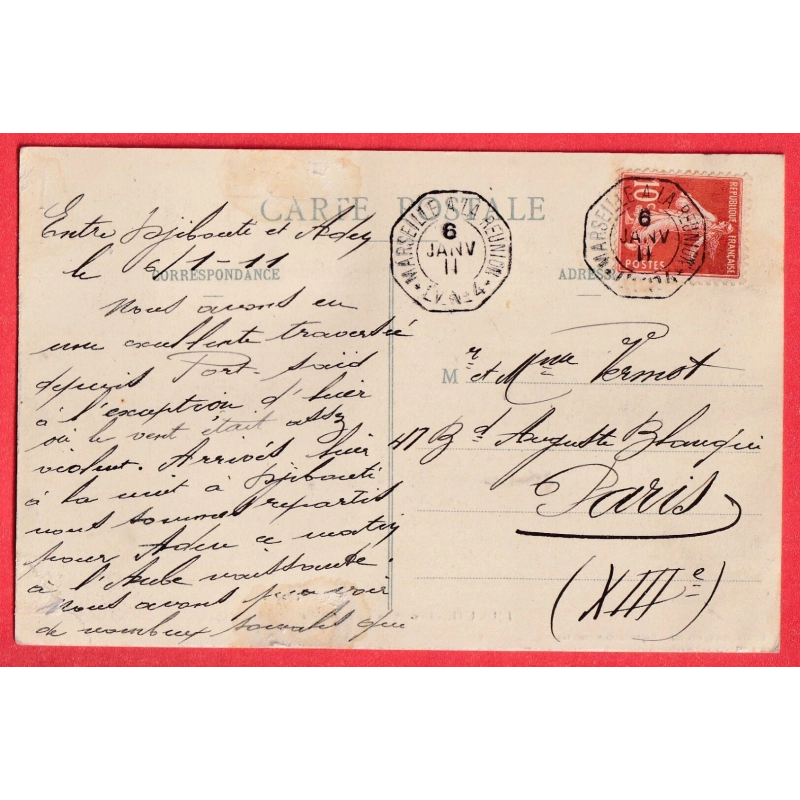 CARTE POSTALE
CORRESPONDANCE
ADRESSE
Entre Djibouti et Aden
le 6/1-11
Nous avons eu
une excellente traversée
depuis Port-Saïd
à l'exception d'hier
où le vent était assez
violent. Arrivés hier
à la nuit à Djibouti
nous sommes repartis
pour Aden ce matin
à l'Aube naissante.
Nous avons pu voir
de nombreux somalis qui
MARSEILLE A LA REUNION
6
JANV
11
L.V. N° 4
10c
REPUBLIQUE FRANÇAISE
POSTES
MARSEILLE A LA REUNION
6
JANV
11
Mr et Mme Vermot
47 Bd Auguste Blanqui
Paris
(XIIIe)